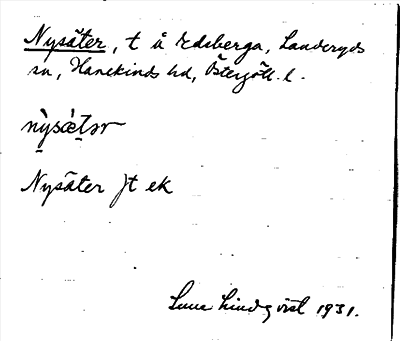 Nysäter, t å Edsberga, Landeryds
sn, Hanekinds hd, Östergötl. l.
nỳsǽtər
Nysäter jt ek
Sune Lindqvist 1931.